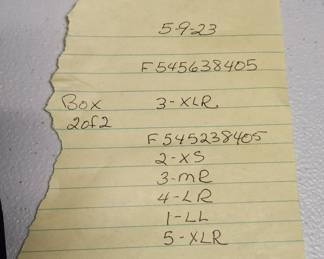 5-9-23
F545638405
Box 3-XLR
2of2
F545238405
2-XS
3-MR
4-LR
1-LL
5-XLR